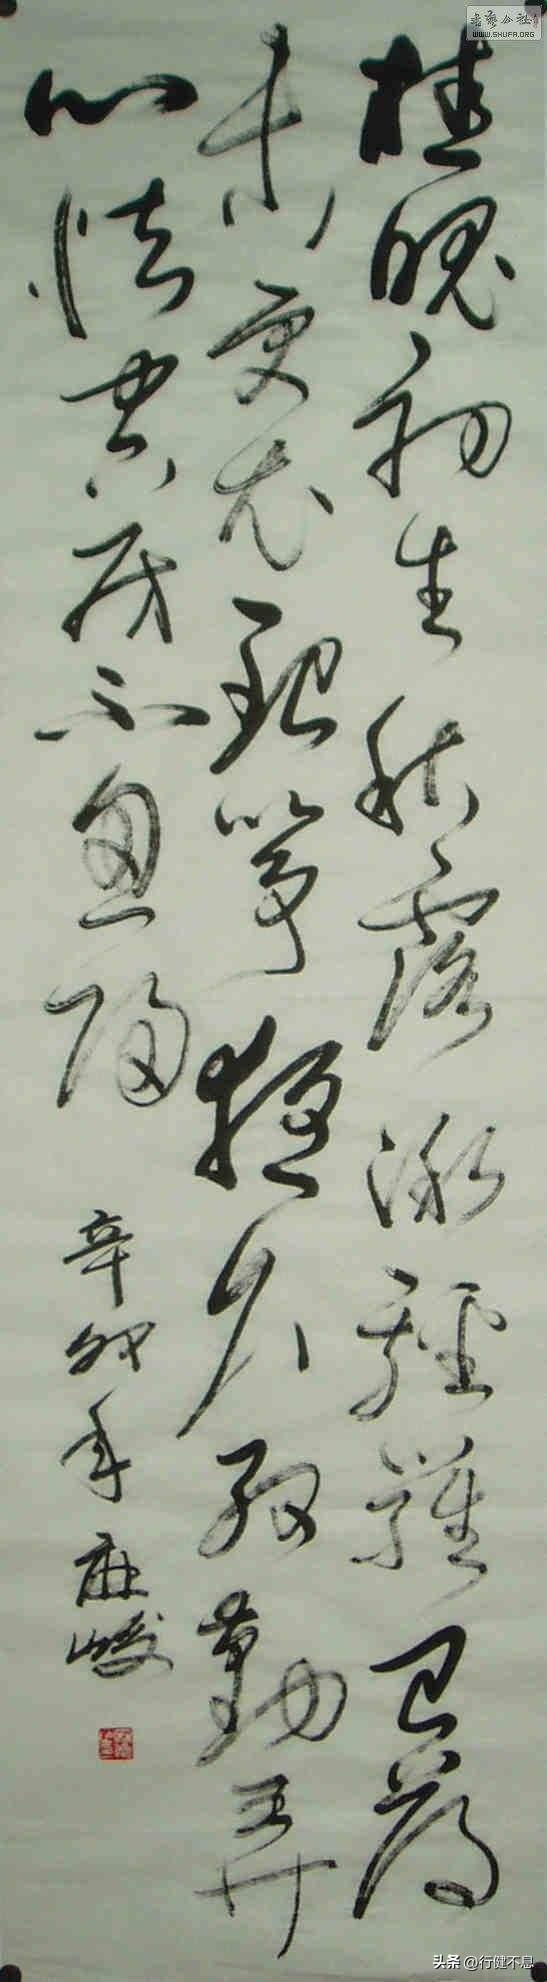 桂魄初生秋露微轻罗已薄
未更衣银筝夜久殷勤弄
心怯空房不忍归
辛卯年 麻峻
书艺公社
WWW.SHUFA.ORG
头条 @行健不息